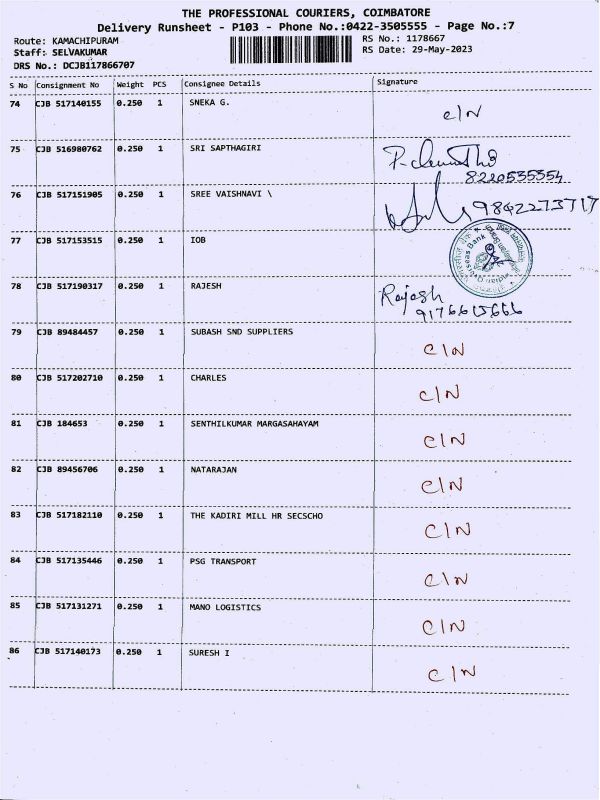 THE PROFESSIONAL COURIERS, COIMBATORE
Delivery Runsheet - P103 - Phone No.:0422-3505555 - Page No.:7
Route: KAMACHIPURAM RS No.: 1178667
Staff: SELVAKUMAR RS Date: 29-May-2023
DRS No.: DCJB117866707
S No Consignment No Weight PCS Consignee Details Signature
74 CJB 517140155 0.250 1 SNEKA G. C/N
75 CJB 516980762 0.250 1 SRI SAPTHAGIRI
8220535554
76 CJB 517151905 0.250 1 SREE VAISHNAVI \ 9842273717
77 CJB 517153515 0.250 1 IOB
78 CJB 517190317 0.250 1 RAJESH Rajesh
79 CJB 89484457 0.250 1 SUBASH SND SUPPLIERS C/N
80 CJB 517202710 0.250 1 CHARLES C/N
81 CJB 184653 0.250 1 SENTHILKUMAR MARGASAHAYAM C/N
82 CJB 89456706 0.250 1 NATARAJAN C/N
83 CJB 517182110 0.250 1 THE KADIRI MILL HR SECSCHO C/N
84 CJB 517135446 0.250 1 PSG TRANSPORT C/N
85 CJB 517131271 0.250 1 MANO LOGISTICS C/N
86 CJB 517140173 0.250 1 SURESH I C/N